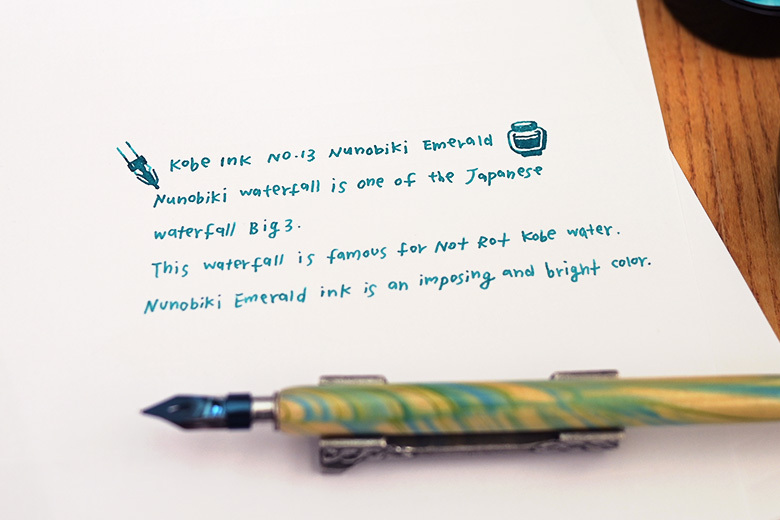 Kobe Ink NO.13 Nunobiki Emerald
Nunobiki waterfall is one of the Japanese
waterfall Big 3.
This waterfall is famous for Not Rot Kobe water.
Nunobiki Emerald ink is an imposing and bright color.